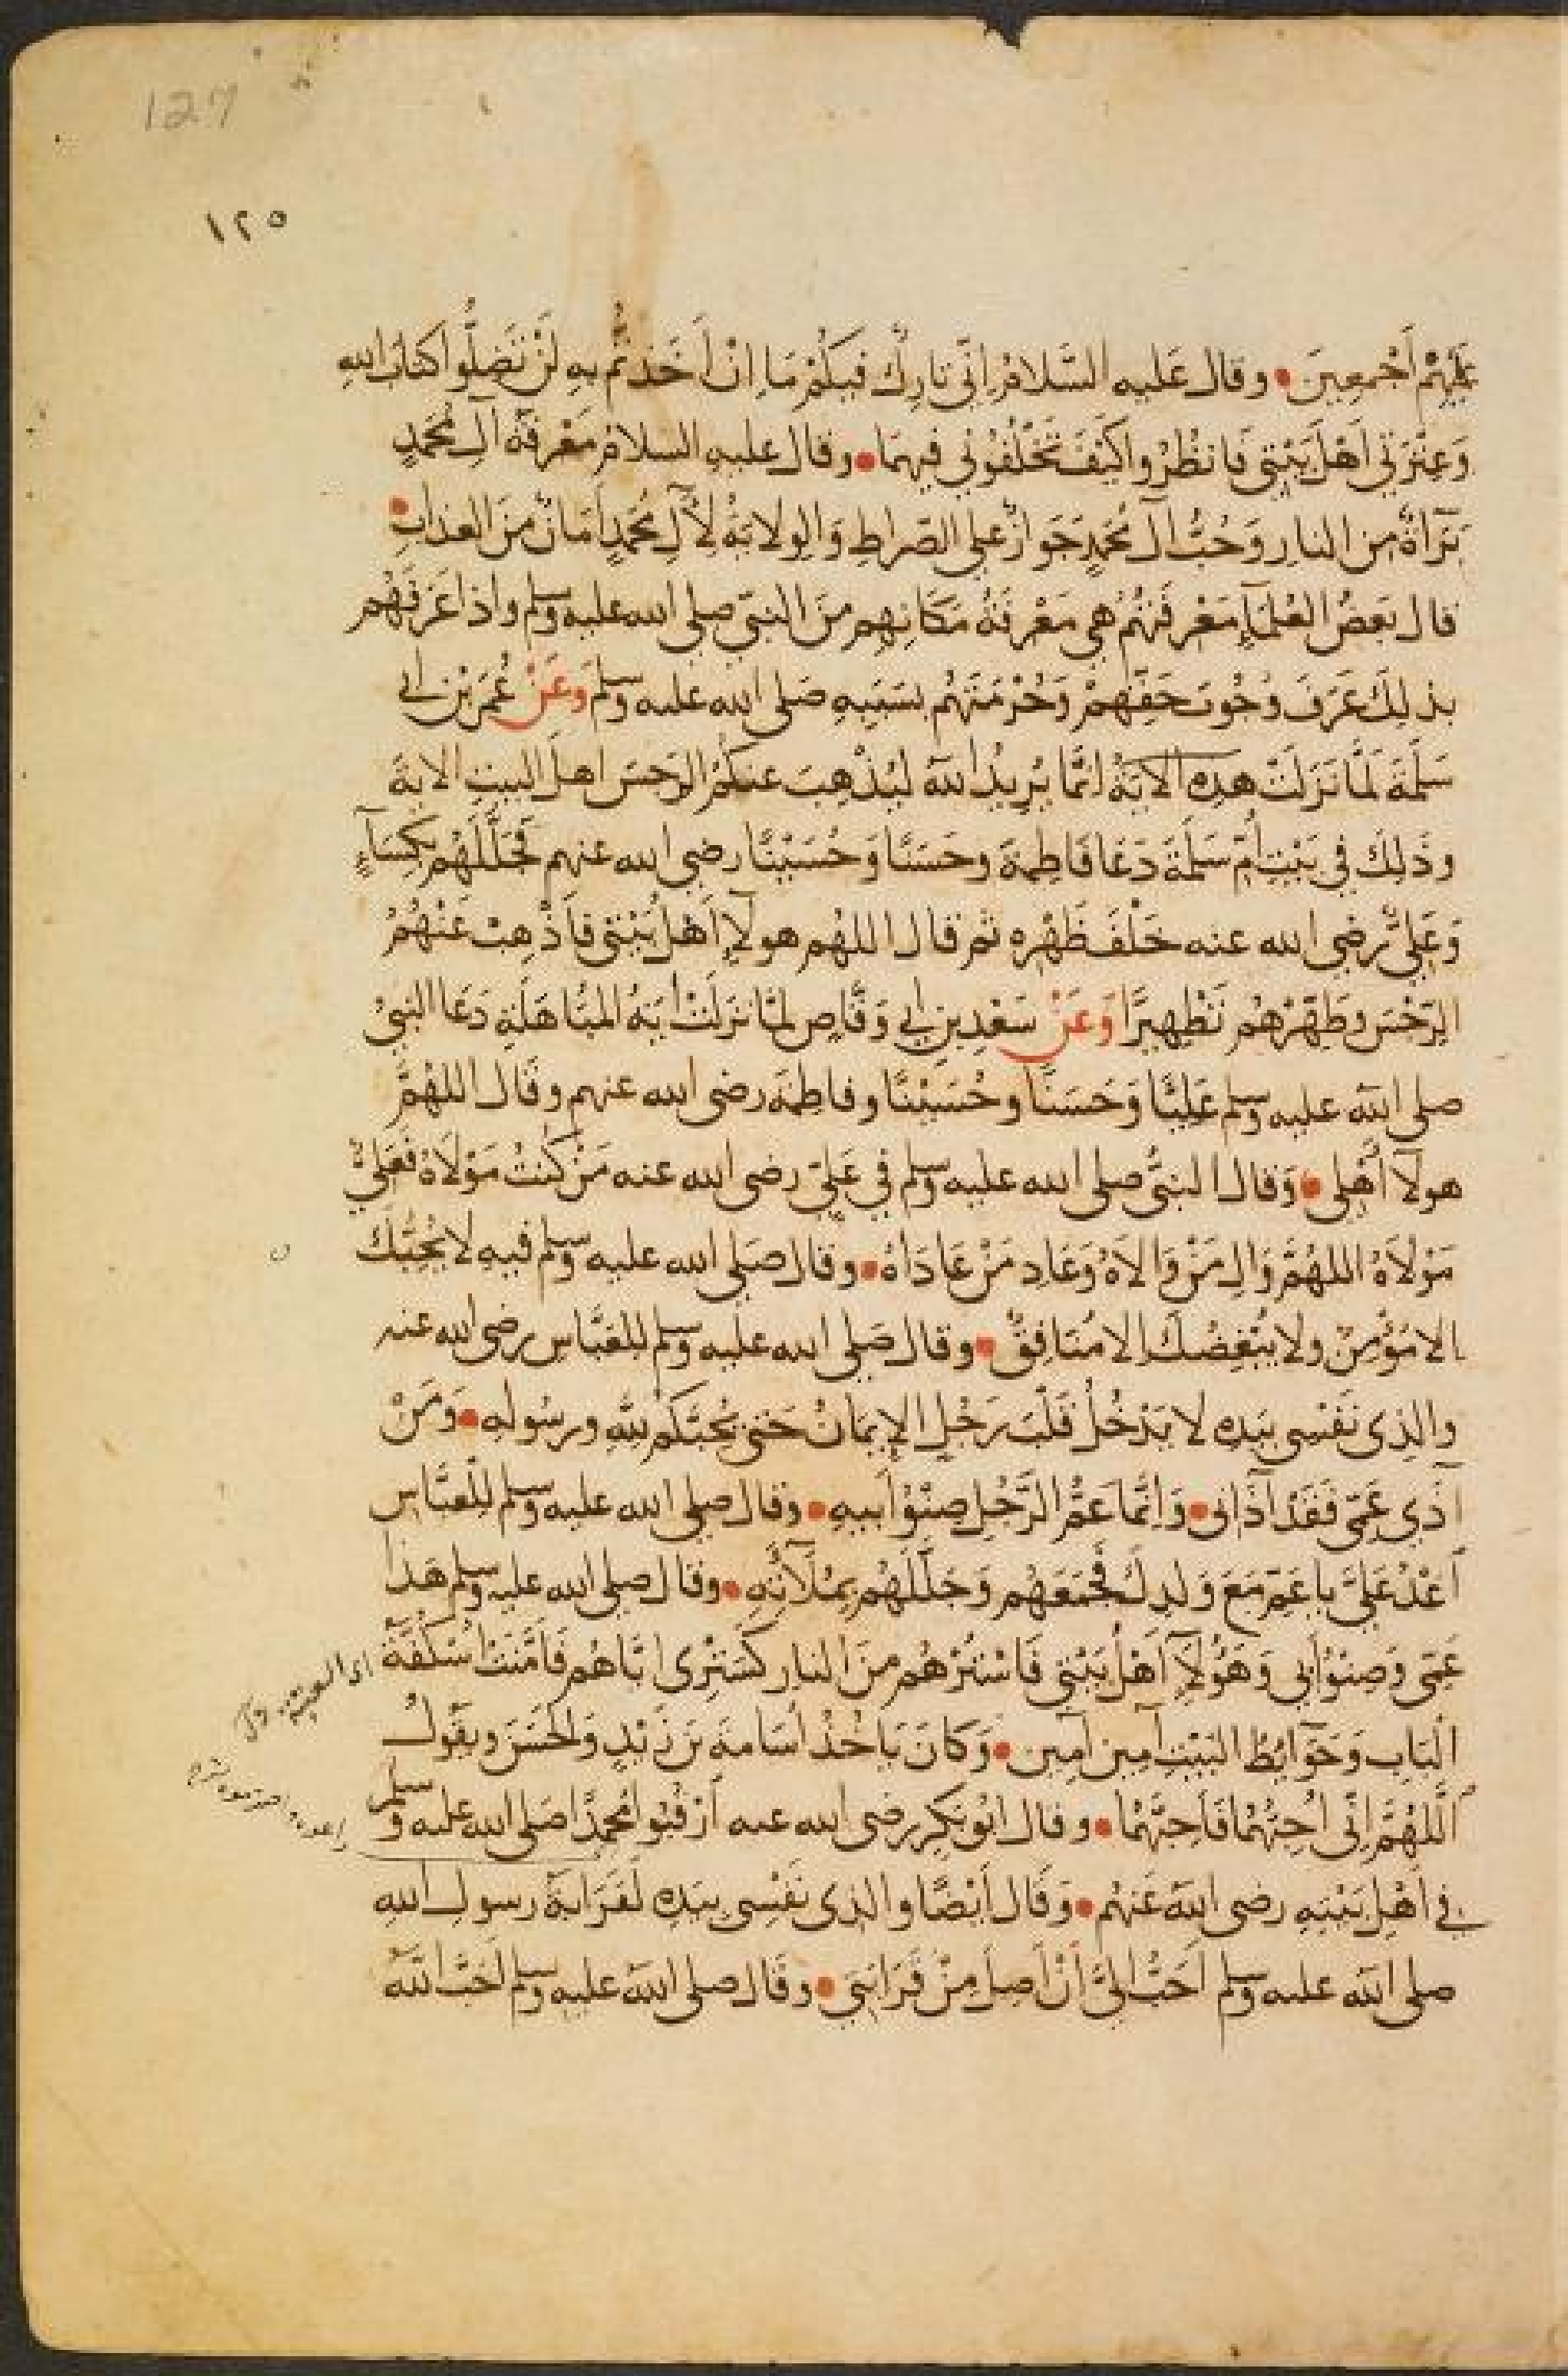 127
١٢٥
عَلَيْهِمْ أَجْمعِينَ • وقال عَليه السَّلامُ إنِّي تارِكٌ فيكُمْ مَا إنْ أَخَذتُمْ بهِ لَنْ تَضِلُّوا كتابَ اللهِ
وَعِتْرَتي أَهْلَ بَيْتِي فَانظُرُوا كَيْفَ تَخْلُفُوني فيهمَا • وقال عليهِ السلامُ مَعْرفَةُ آلِ مُحَمدٍ
بَرَآةٌ مِن النارِ وَحُبُّ آلِ مُحَمدٍ جَوَازٌ على الصّراطِ وَالوِلايَةُ لِآلِ مُحَمدٍ أَمَانٌ مِنَ العذابِ •
قال بَعضُ العُلَمَآءِ مَعْرفَتُهُمْ هي مَعْرفَةُ مَكَانِهِم مِنَ النَّبيّ صلى الله عليه وسلم واذا عَرَفَهُم
بذلِكَ عَرَفَ وُجُوبَ حَقّهِمْ وَحُرْمَتَهُم بسَبَبِهِ صَلى الله عليه وسلم وعَنْ عُمَرَ بْنِ ابي
سَلَمَةَ لَمَّا نَزَلَتْ هذه الآيَةُ انَّمَا يُرِيدُ اللهُ ليُذْهِبَ عنكُمُ الرّجسَ اهلَ البيتِ الايةَ
وَذَلِكَ في بَيْتِ أمّ سَلَمَةَ دَعَا فَاطِمَةَ وحَسَنًا وَحُسَيْنًا رضي الله عنهم فَجَلَّلَهُم بكِسَآءٍ
وَعَلِيٌّ رضي الله عنه خَلْفَ ظَهْرِهِ ثم قال اللهُم هولآءِ أَهْلُ بَيْتي فَأَذْهِبْ عَنْهُمُ
الرّجْسَ وطَهّرْهُم تَطْهِيرًا وَعَنْ سَعْدِ بن ابي وَقَّاصٍ لمّا نزَلَتْ ايَةُ المُبَاهَلَةِ دَعَا النبيُّ
صلى الله عليه وسلم عَلِيًّا وَحَسَنًا وحُسَيْنًا وفاطِمَةَ رضي الله عنهم وقَال اللهُمَّ
هولآ أَهْلي • وَقال النبيُّ صلى الله عليه وسلم في عَليٍّ رضي الله عنه مَنْ كُنتُ مَوْلَاهُ فَعَلِيٌّ
مَوْلَاهُ اللهُمَّ وَالِ مَنْ وَالَاهُ وَعَادِ مَنْ عَادَاهُ • وقال صَلى الله عليه وسلم فيهِ لا يُحِبُّكَ
الا مُؤْمِنٌ ولا يُبْغِضُكَ الا مُنَافِقٌ • وقال صَلى الله عليه وسلم للعَبَّاسِ رضي الله عنه
والذي نَفْسِي بيَدِهِ لا يَدْخُلُ قَلْبَ رَجُلٍ الإيمَانُ حَتى يُحِبَّكُم للهِ ورسُولهِ • وَمَنْ
آذَى عَمِّي فَقَدْ آذَاني • وَانَّما عَمُّ الرَّجُلِ صِنْوُ أبيهِ • وقال صلى الله عليه وسلم لِلْعبَّاسِ
أَغْدُ عَلَيَّ يا عَمِّ مَعَ وَلدِكَ فجَمَعَهُم وَجَلَّلَهُم بمُلَآءتِهِ • وقال صلى الله عليه وسلم هَذا
عَمِّي وَصِنْوُ أبي وَهَؤُلآءِ أَهْلُ بَيْتي فَاسْتُرْهُم مِنَ النارِ كَسَتْري ايَّاهُم فَأَمَّنَتْ أُسْكُفَّةُ
الْبَابِ وَحَوَائِطُ البَيْتِ آمِين آمِين • وَكَانَ يَاخُذُ أُسَامَةَ بْنَ زَيْدٍ وَالحَسَنَ ويقُولُ
اللَّهُمَّ إنِّي أُحِبُّهُمَا فَأَحِبَّهُمَا • وقال ابُو بَكرٍ رضي الله عنه أرْقُبُوا مُحمدًا صَلى الله عليه وسلم
في أَهْلِ بَيْتِهِ رضي الله عَنْهُم • وَقَال أَيْضًا والذي نَفْسِي بيَدِهِ لَقَرَابَةُ رسولِ اللهِ
صلى الله عليه وسلم أَحَبُّ إليَّ أَنْ أَصِلَ مِنْ قَرَابَتي • وقَال صلى الله عليه وسلم أحَبَّ اللهُ
اى العتبة